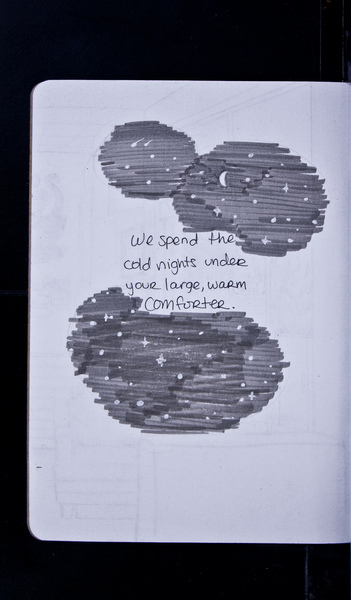 We spend the
cold nights under
your large, warm
comforter.